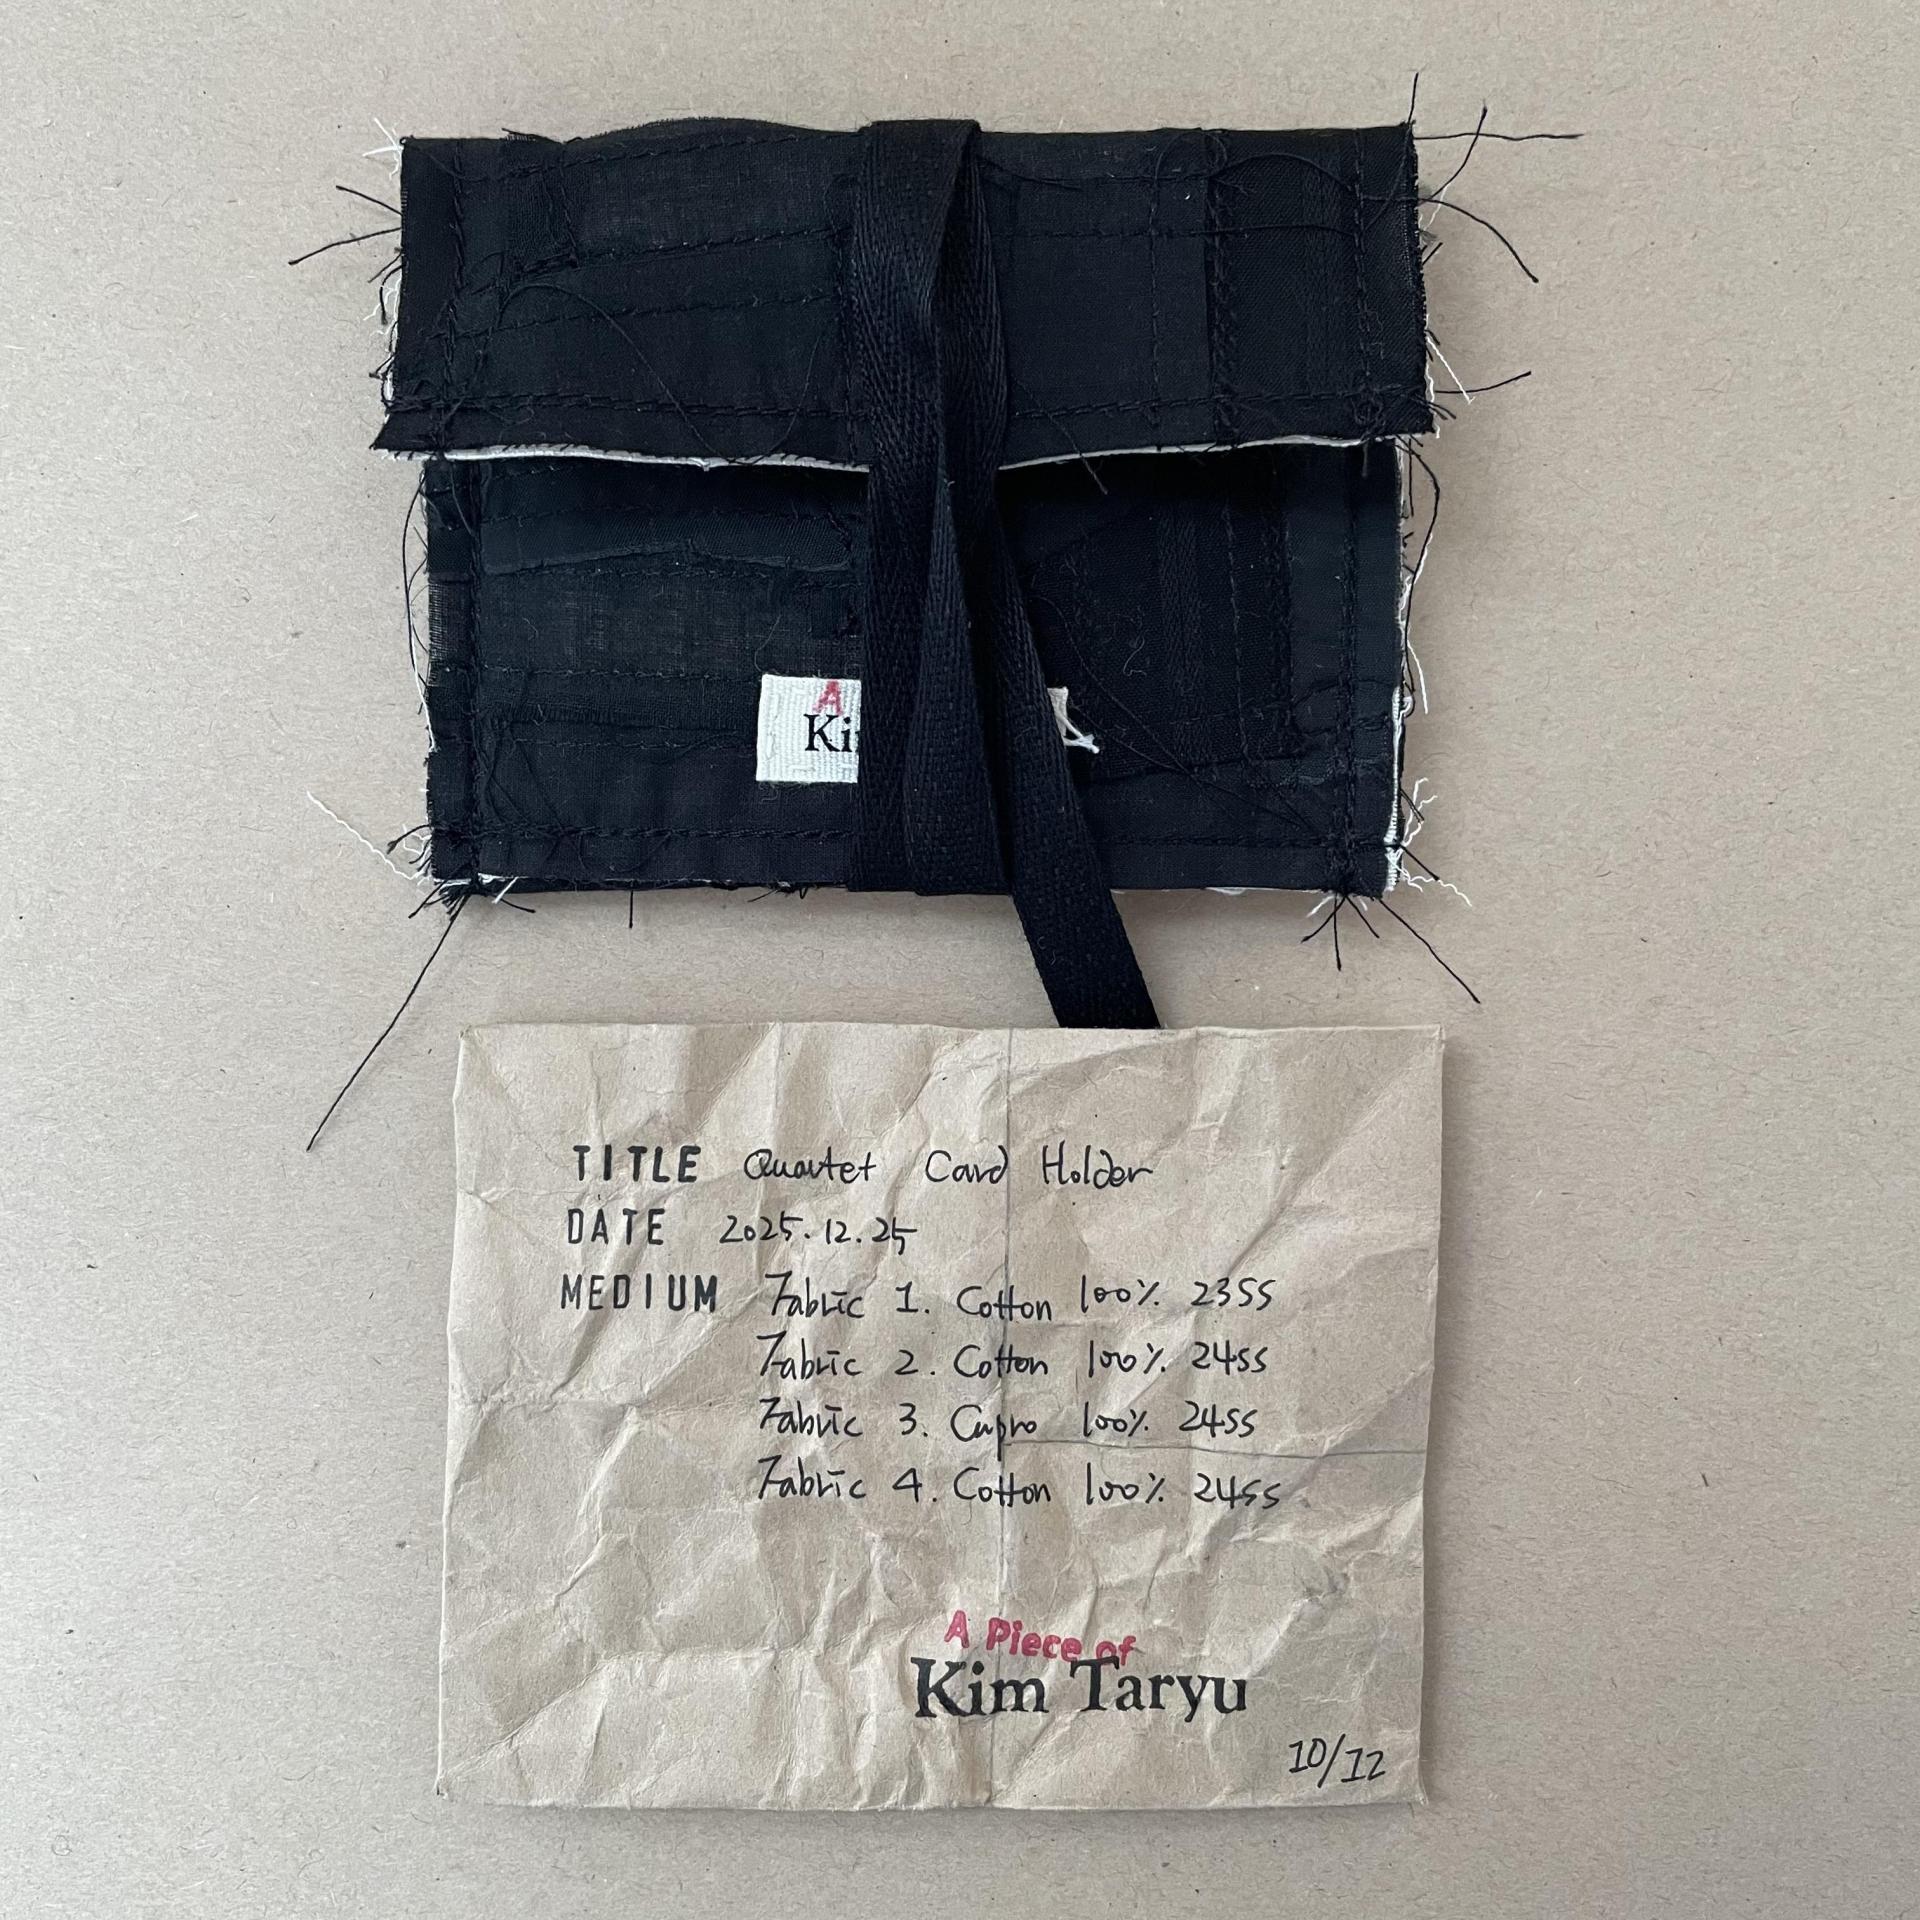 A
Ki
TITLE Quartet Card Holder
DATE 2025.12.25
MEDIUM Fabric 1. Cotton 100% 23SS
Fabric 2. Cotton 100% 24SS
Fabric 3. Cupro 100% 24SS
Fabric 4. Cotton 100% 24SS
A Piece of
Kim Taryu
10/12